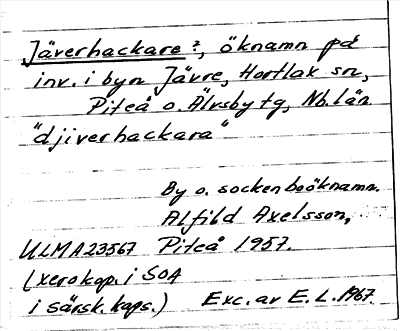 Jäverhackare?, öknamn på
inv. i byn Jävre, Hortlax sn,
Piteå o. Älvsby tg, Nb. län
"djiverhackara"
By o. sockenboöknamn.
Alfild Axelsson,
ULMA 23567 Piteå 1957.
(xerokop. i SOA
i särsk. kaps.) Exc. av E. L. 1967.